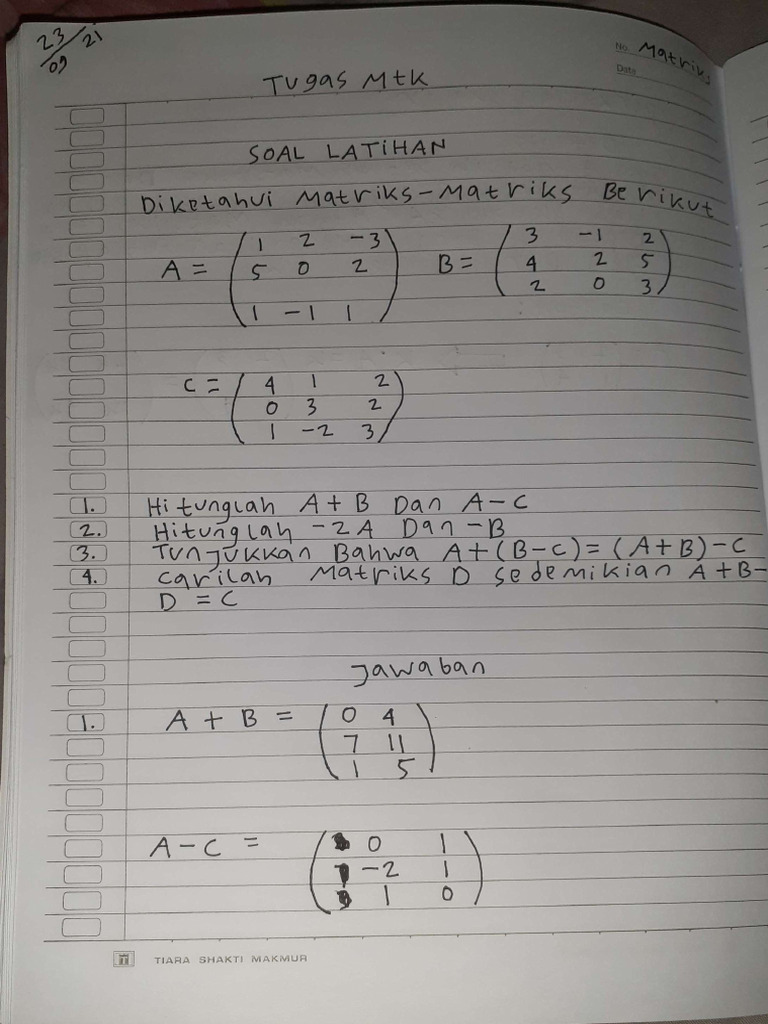 23/09 21
No. Matriks
Date
Tugas Mtk
SOAL LATIHAN
Diketahui Matriks-Matriks Berikut
A = (1 2 -3) B = (3 -1 2)
(5 0 2) (4 2 5)
(1 -1 1) (2 0 3)
C = (4 1 2)
(0 3 2)
(1 -2 3)
1. Hitunglah A + B Dan A - C
2. Hitunglah -2A Dan -B
3. Tunjukkan Bahwa A + (B - C) = (A + B) - C
4. Carilah Matriks D sedemikian A + B -
D = C
Jawaban
1. A + B = (0 4)
(7 11)
(1 5)
A - C = (0 1)
(-2 1)
(1 0)
TIARA SHAKTI MAKMUR